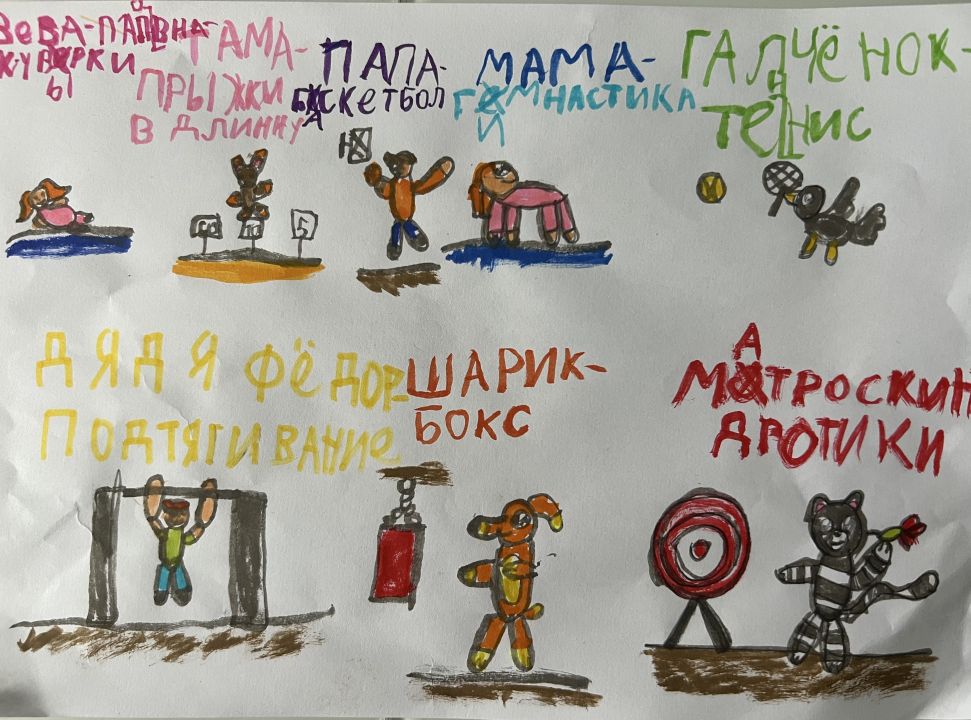 КУВЫРКИ
ТАМА-
ПРЫЖКИ
В ДЛИННУ
ПАПА-
БАСКЕТБОЛ
МАМА-
ГИМНАСТИКА
ГАЛЧЁНОК-
ТЕННИС
10 5
ДЯДЯ ФЁДОР-
ПОДТЯГИВАНИЕ
ШАРИК-
БОКС
МАТРОСКИН
ДРОТИКИ